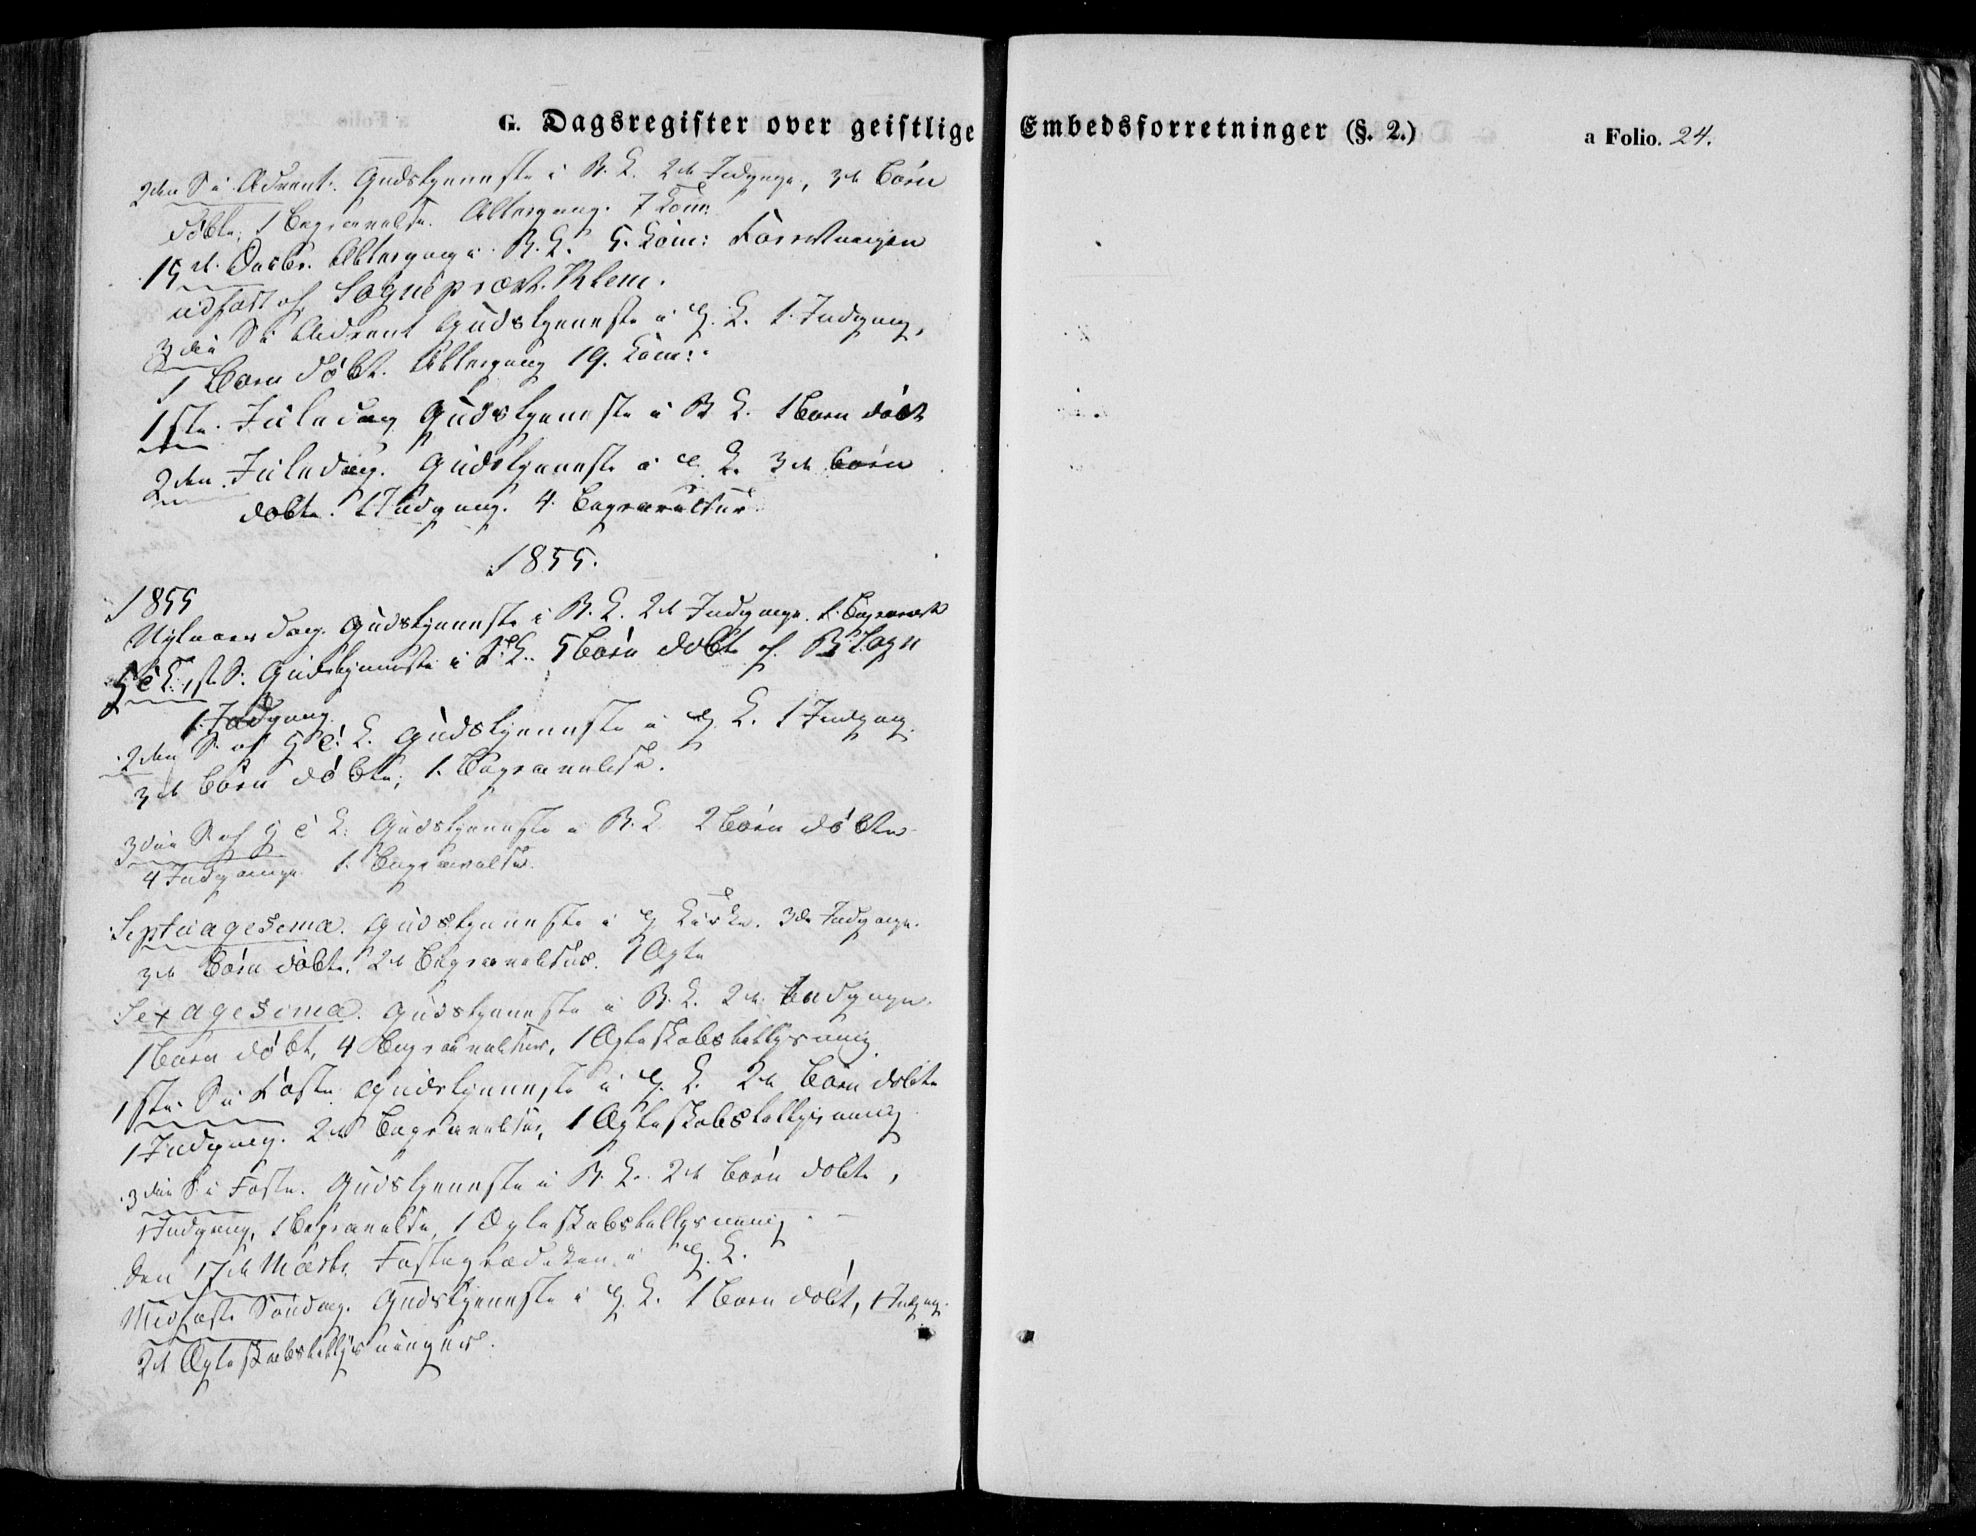 G. Dagsregister over geistlige Embedsforretninger (§. 2.) a Folio. 24.
2den S. i Advent. Gudstjeneste i B. K. 2de Indgange, 3de Børn
døbte, 1 Begravelse. Altergang. 7 Com:
15de Decbr. Altergang i B. K. 5. Com: Forretningen
udført af Sognepræst
3die S. i Advent Gudstjeneste i H. K. 1. Indgang,
1 Barn døbt. Altergang 19. Com:
1ste Juledag Gudstjeneste i B K. 1 Barn døbt
2den Juledag. Gudstjeneste i H. K. 3de Børn
døbte. 1 Indgang. 4 Begravelser.
1855.
1855
Nytaarsdag. Gudstjeneste i B. K. 2de Indgange. 1. Begravels
1ste S. Gudstjeneste i K. 5 Børn døbte af B. Sogn
1. Indgang.
2den S. af H e. K. Gudstjeneste i H. K. 1 Indgang.
3de Børn døbte, 1. Begravelse.
3die S. af H e K. Gudstjeneste i B. K 2 Børn døbte
4 Indgange 1. Begravelse.
Septuagesima. Gudstjeneste i H Kirke. 3de Indgange.
3de Børn døbte. 2de Begravelser. 1 Ægte
Sexagesima. Gudstjeneste i B. K. 2de Indgange.
1 Barn døbt, 4 Begravelser, 1 Ægteskabstillysning
1ste S. i Faste. Gudstjeneste i H. K. 2de Børn døbte
1 Indgang. 2de Begravelser, 1 Ægteskabstillysning
3die S. i Faste. Gudstjeneste i B. K. 2de Børn døbte,
1 Indgang, 1 Begravelse, 1 Ægteskabstillysning.
Den 17de Marts Fasteprædiken i H. K.
Midfaste Søndag. Gudstjeneste i H. K. 1 Barn døbt, 1 Indgang.
2de Ægteskabstillysninger.